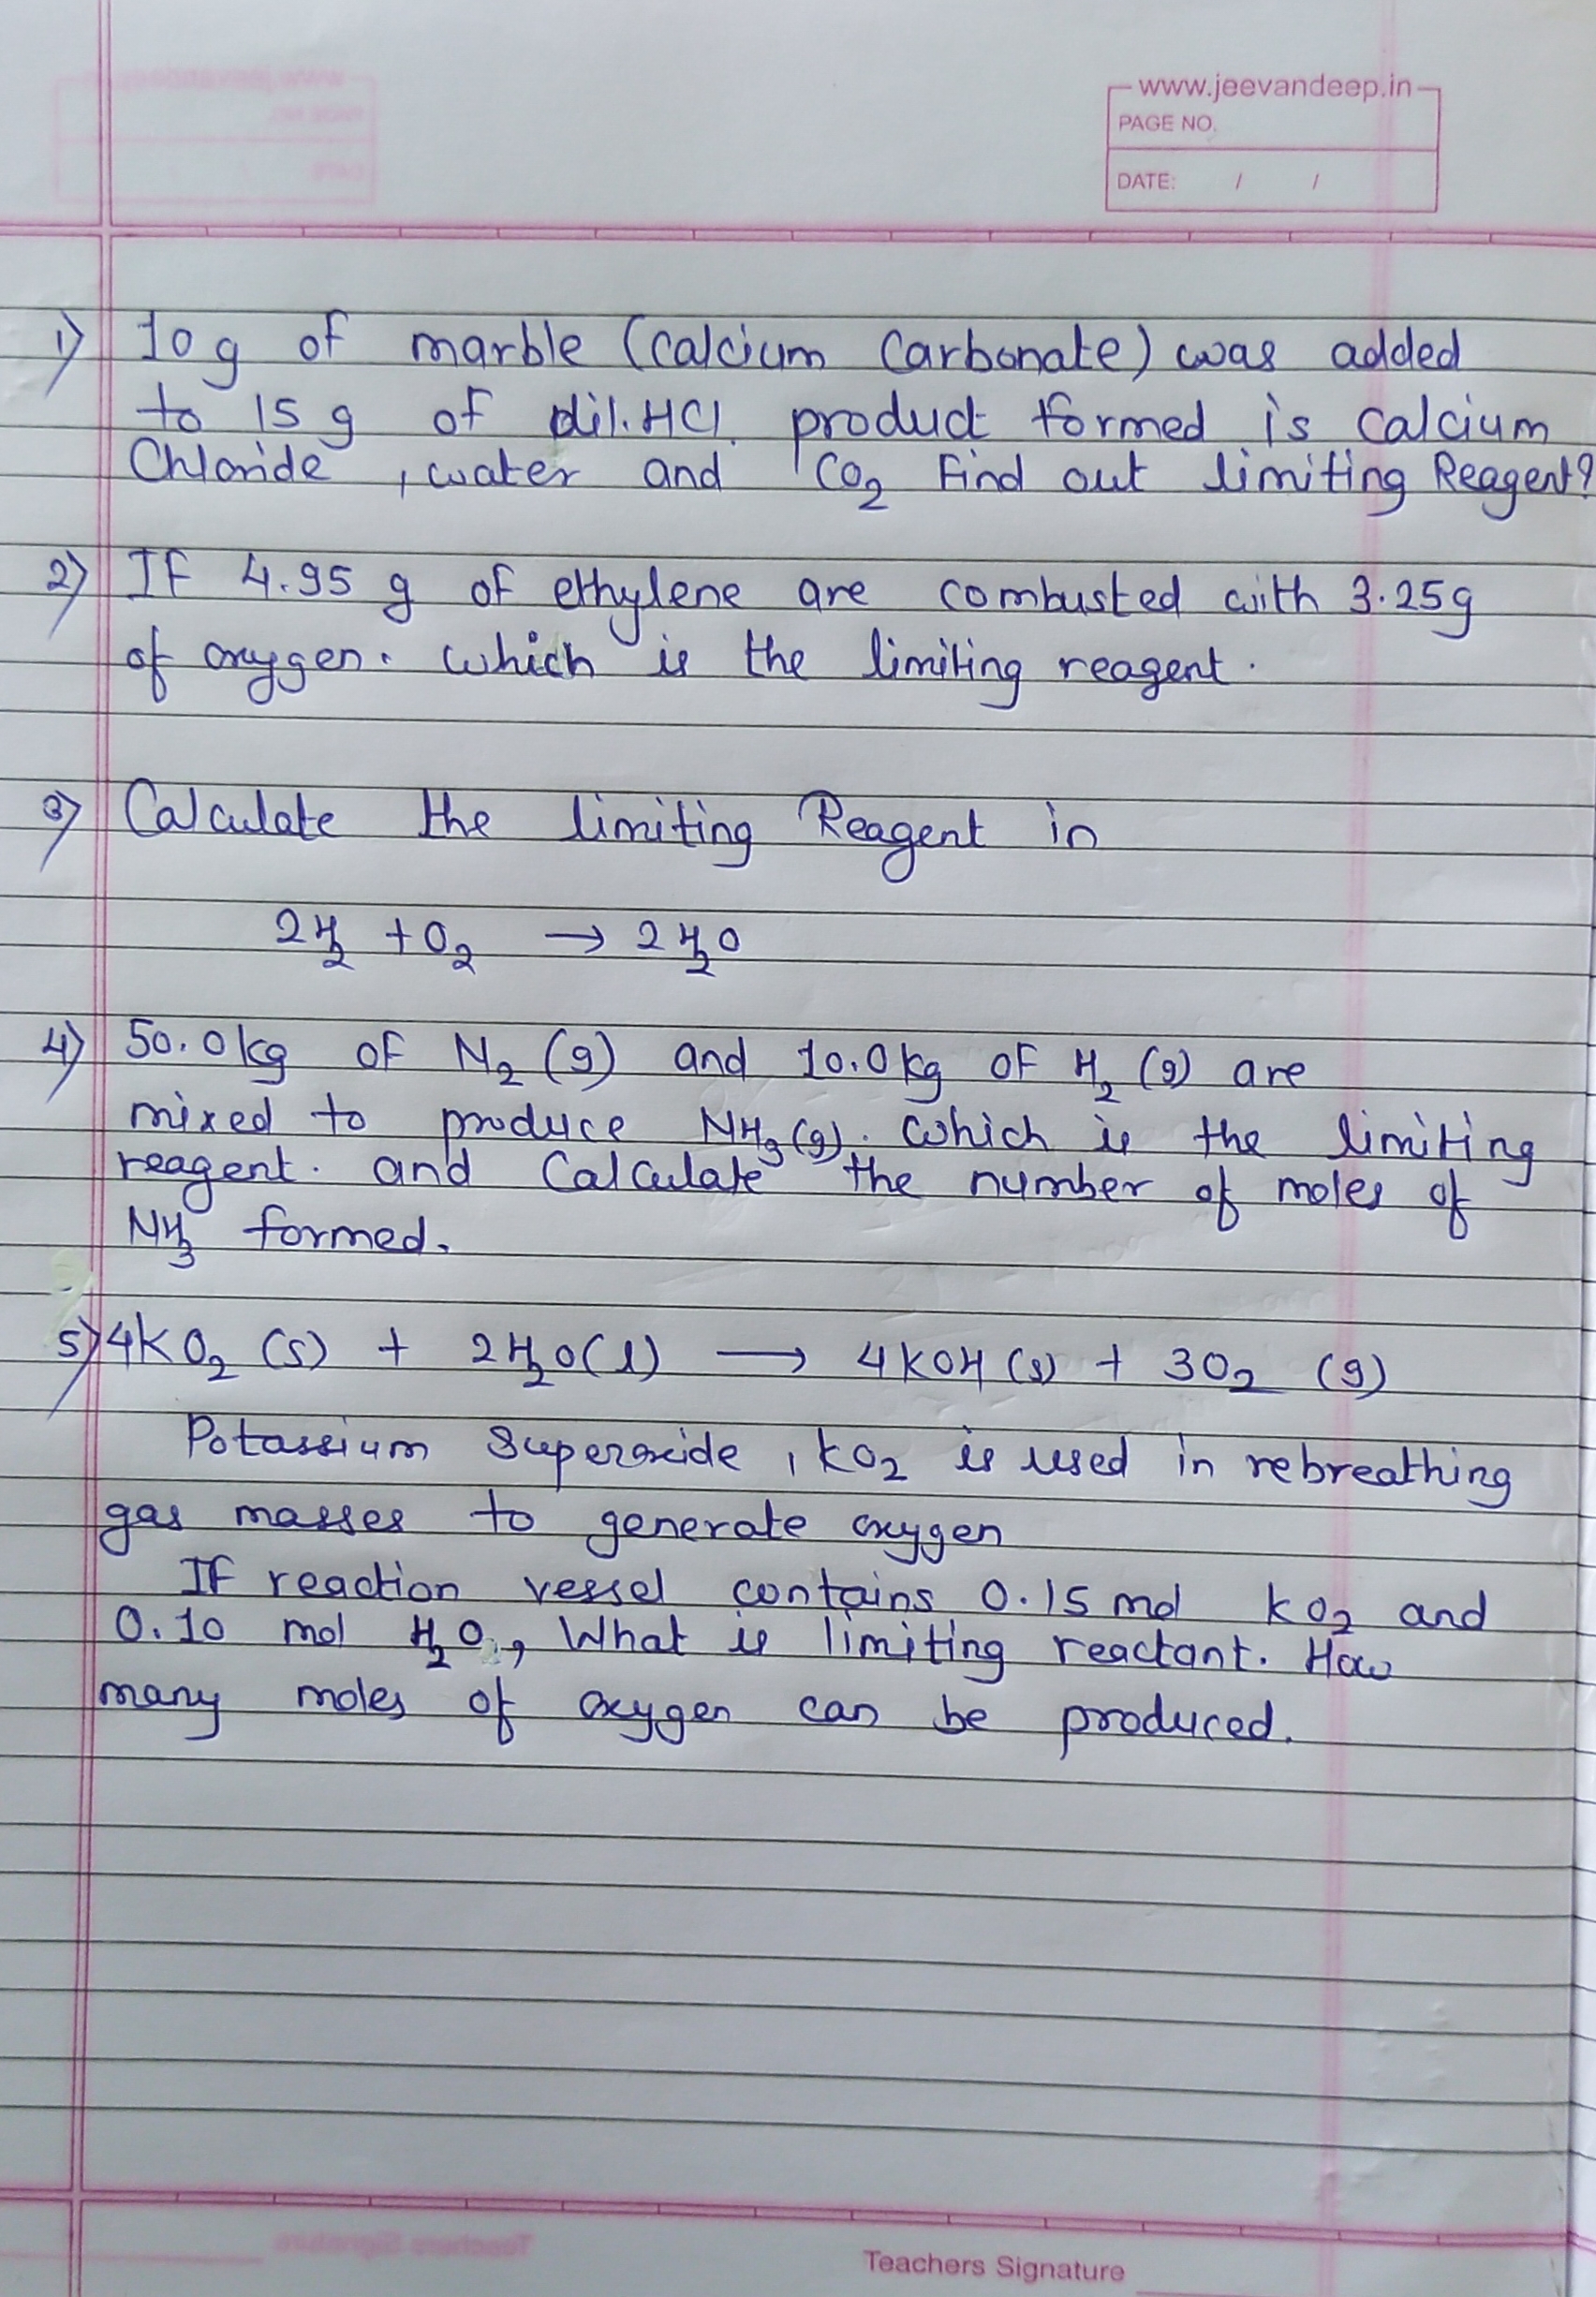 www.jeevandeep.in
PAGE NO.
DATE: / /
1) 10 g of marble (calcium carbonate) was added
to 15 g of dil. HCl. product formed is calcium
Chloride , water and CO2 Find out limiting Reagent?
2) If 4.95 g of ethylene are combusted with 3.25g
of oxygen. which is the limiting reagent.
3) Calculate the limiting Reagent in
2H2 + O2 → 2H2O
4) 50.0 kg of N2 (g) and 10.0 kg of H2 (g) are
mixed to produce NH3 (g). Which is the limiting
reagent. and Calculate the number of moles of
NH3 formed.
5) 4KO2 (s) + 2H2O(l) → 4KOH (s) + 3O2 (g)
Potassium Superoxide , KO2 is used in rebreathing
gas masses to generate oxygen
If reaction vessel contains 0.15 mol KO2 and
0.10 mol H2O, What is limiting reactant. How
many moles of oxygen can be produced.
Teachers Signature